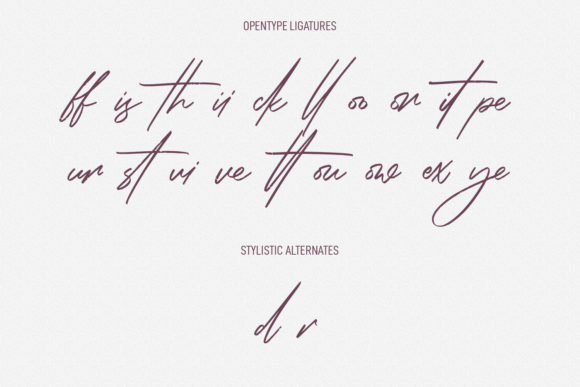 OPENTYPE LIGATURES
ff is th ii ck ll oo or it pe
ur st vi ve tt ou ow ex ye
STYLISTIC ALTERNATES
d r